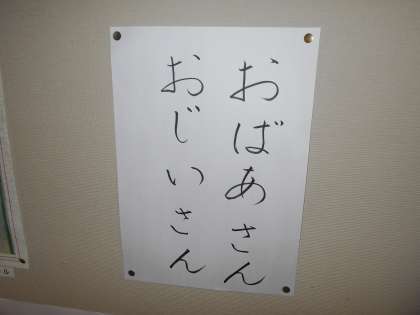 おばあさん
おじいさん
ル